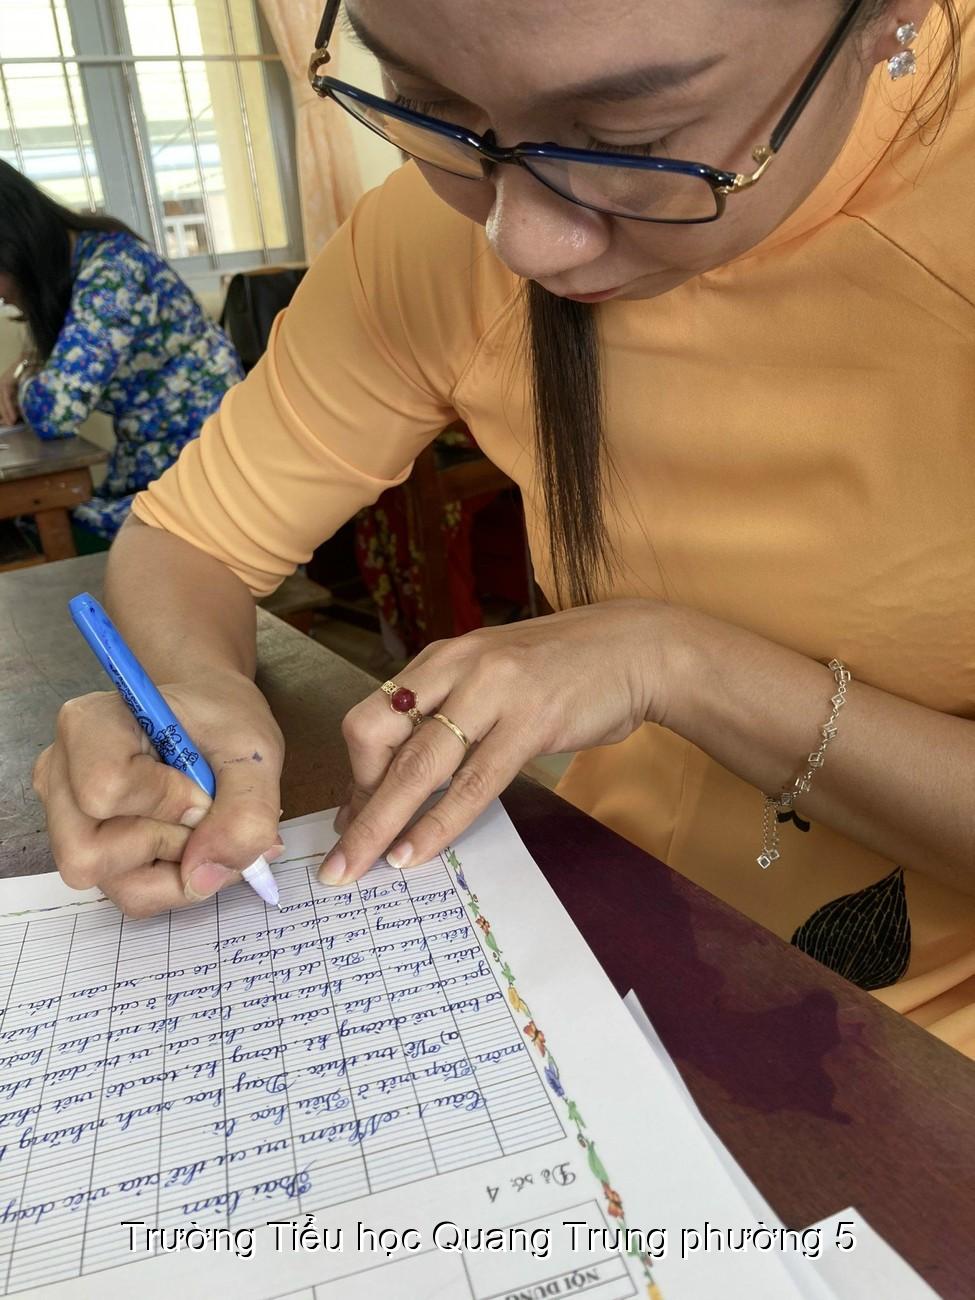 NỘI DUNG
Đề số: 4
Bài làm
Câu 1: Nhiệm vụ cụ thể của việc dạy
môn Tập viết ở Tiểu học là:
a) Về tri thức: Dạy học sinh những
cơ bản về đường kẻ, dòng kẻ, toạ độ viết chữ
gọi các nét chữ, cấu tạo chữ cái, vị trí dấu
dấu phụ, các khái niệm liên kết nét chữ hoặc
kết chữ cái. Từ đó hình thành ở các em
biểu tượng về hình dáng, độ cao, sự cân đối,
thẩm mĩ của các chữ viết.
b) Về kĩ năng
Trường Tiểu học Quang Trung phường 5